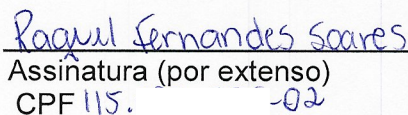 Raquel Fernandes Soares
Assinatura (por extenso)
CPF 115. -02